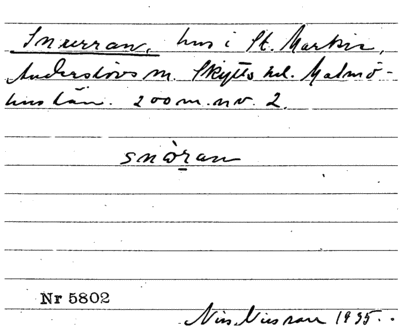 Snurran, hus i St. Markie,
Anderslövs sn. Skytts hd. Malmö-
hus län. 200 m. nv. 2.
snòran
Nr 5802
Nils Nilsson 1935.